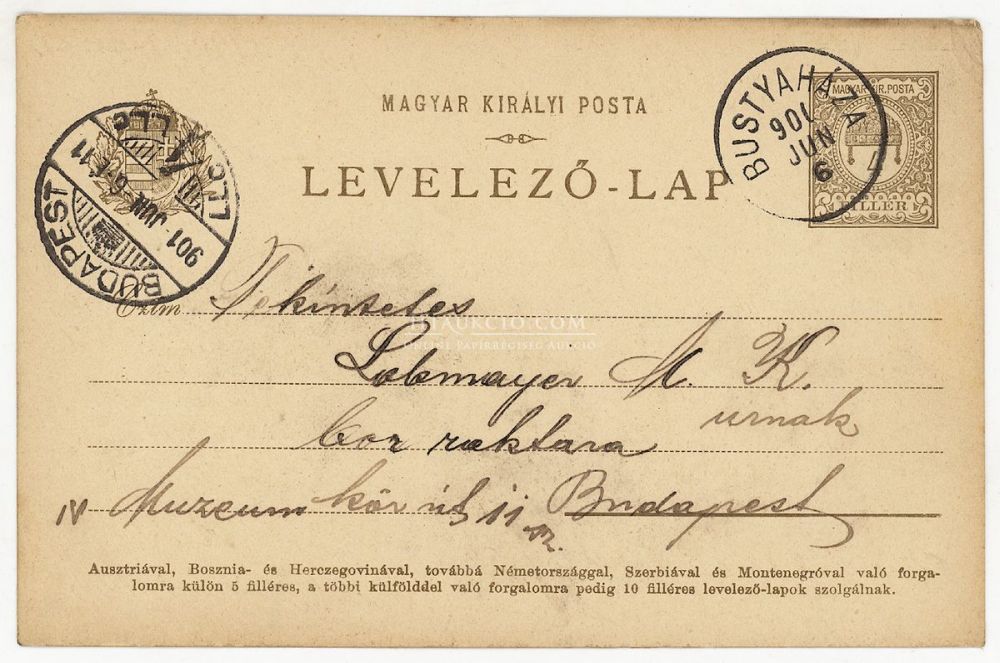 MAGYAR KIRÁLYI POSTA
LEVELEZŐ-LAP
MAGYAR KIR. POSTA
FILLER
BUSTYAHÁZA
901
JUN
6
BUDAPEST
901 JUN
Czim
Tekintetes
AUKCIO.COM
ONLINE PAPÍRRÉGISÉG AUKCIÓ
Lobmayer M. K.
urnak
bor raktara
IV Muzeum kör út 11 sz. Budapest
Ausztriával, Bosznia- és Herczegovinával, továbbá Németországgal, Szerbiával és Montenegróval való forga-
lomra külön 5 filléres, a többi külfölddel való forgalomra pedig 10 filléres levelező-lapok szolgálnak.